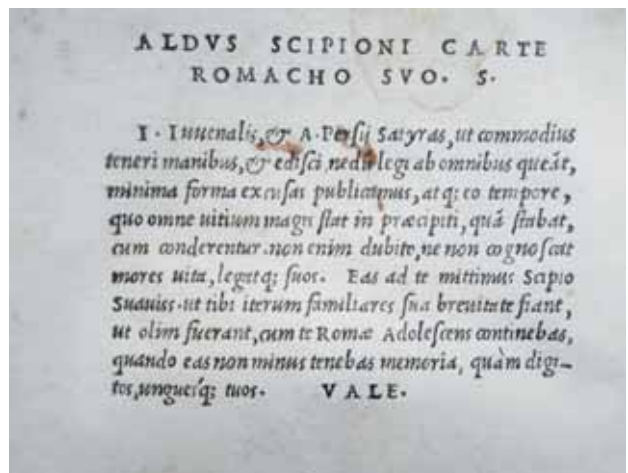 ALDVS SCIPIONI CARTE
ROMACHO SVO. S.
I. Iuuenalis, & A. Persij Satyras, ut commodius
teneri manibus, & edisci nedũ legi ab omnibus queãt,
minima forma excusas publicamus, atq; eo tempore,
quo omne uitium magis stat in præcipiti, quã stabat,
cum conderentur. non enim dubito, ne non cognoscat
mores uita, legatq; suos. Eas ad te mittimus Scipio
Suauiss. ut tibi iterum familiares sua breuitate fiant,
ut olim fuerant, cum te Romæ Adolescens continebas,
quando eas non minus tenebas memoria, quàm digi-
tos, unguesq́; tuos. VALE.